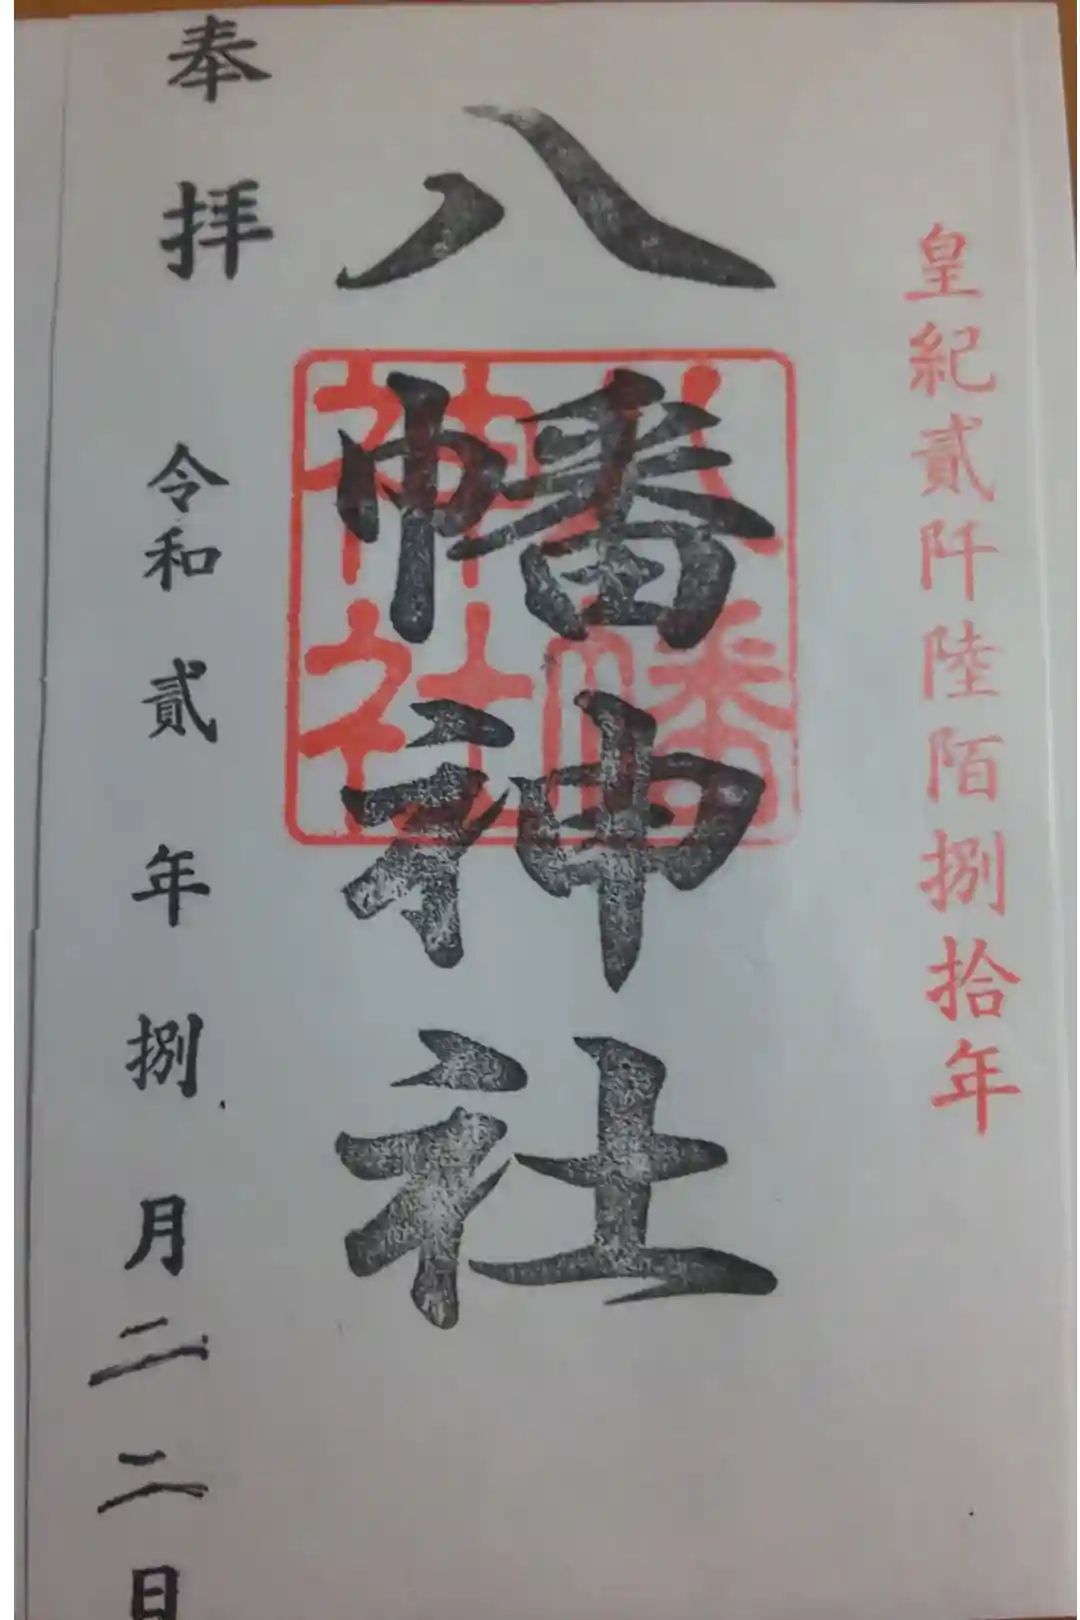 皇紀貳阡陸陌捌拾年
八幡神社
八幡
神社
奉拝 令和貳年捌月二二日